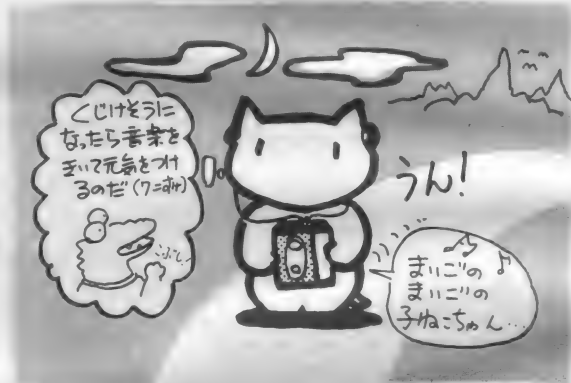 くじけそうに
なったら音楽を
きいて元気をつけ
るのだ(ワニすけ)
こぶしっ
うん!
まいごの
まいごの
子ねこちゃん…